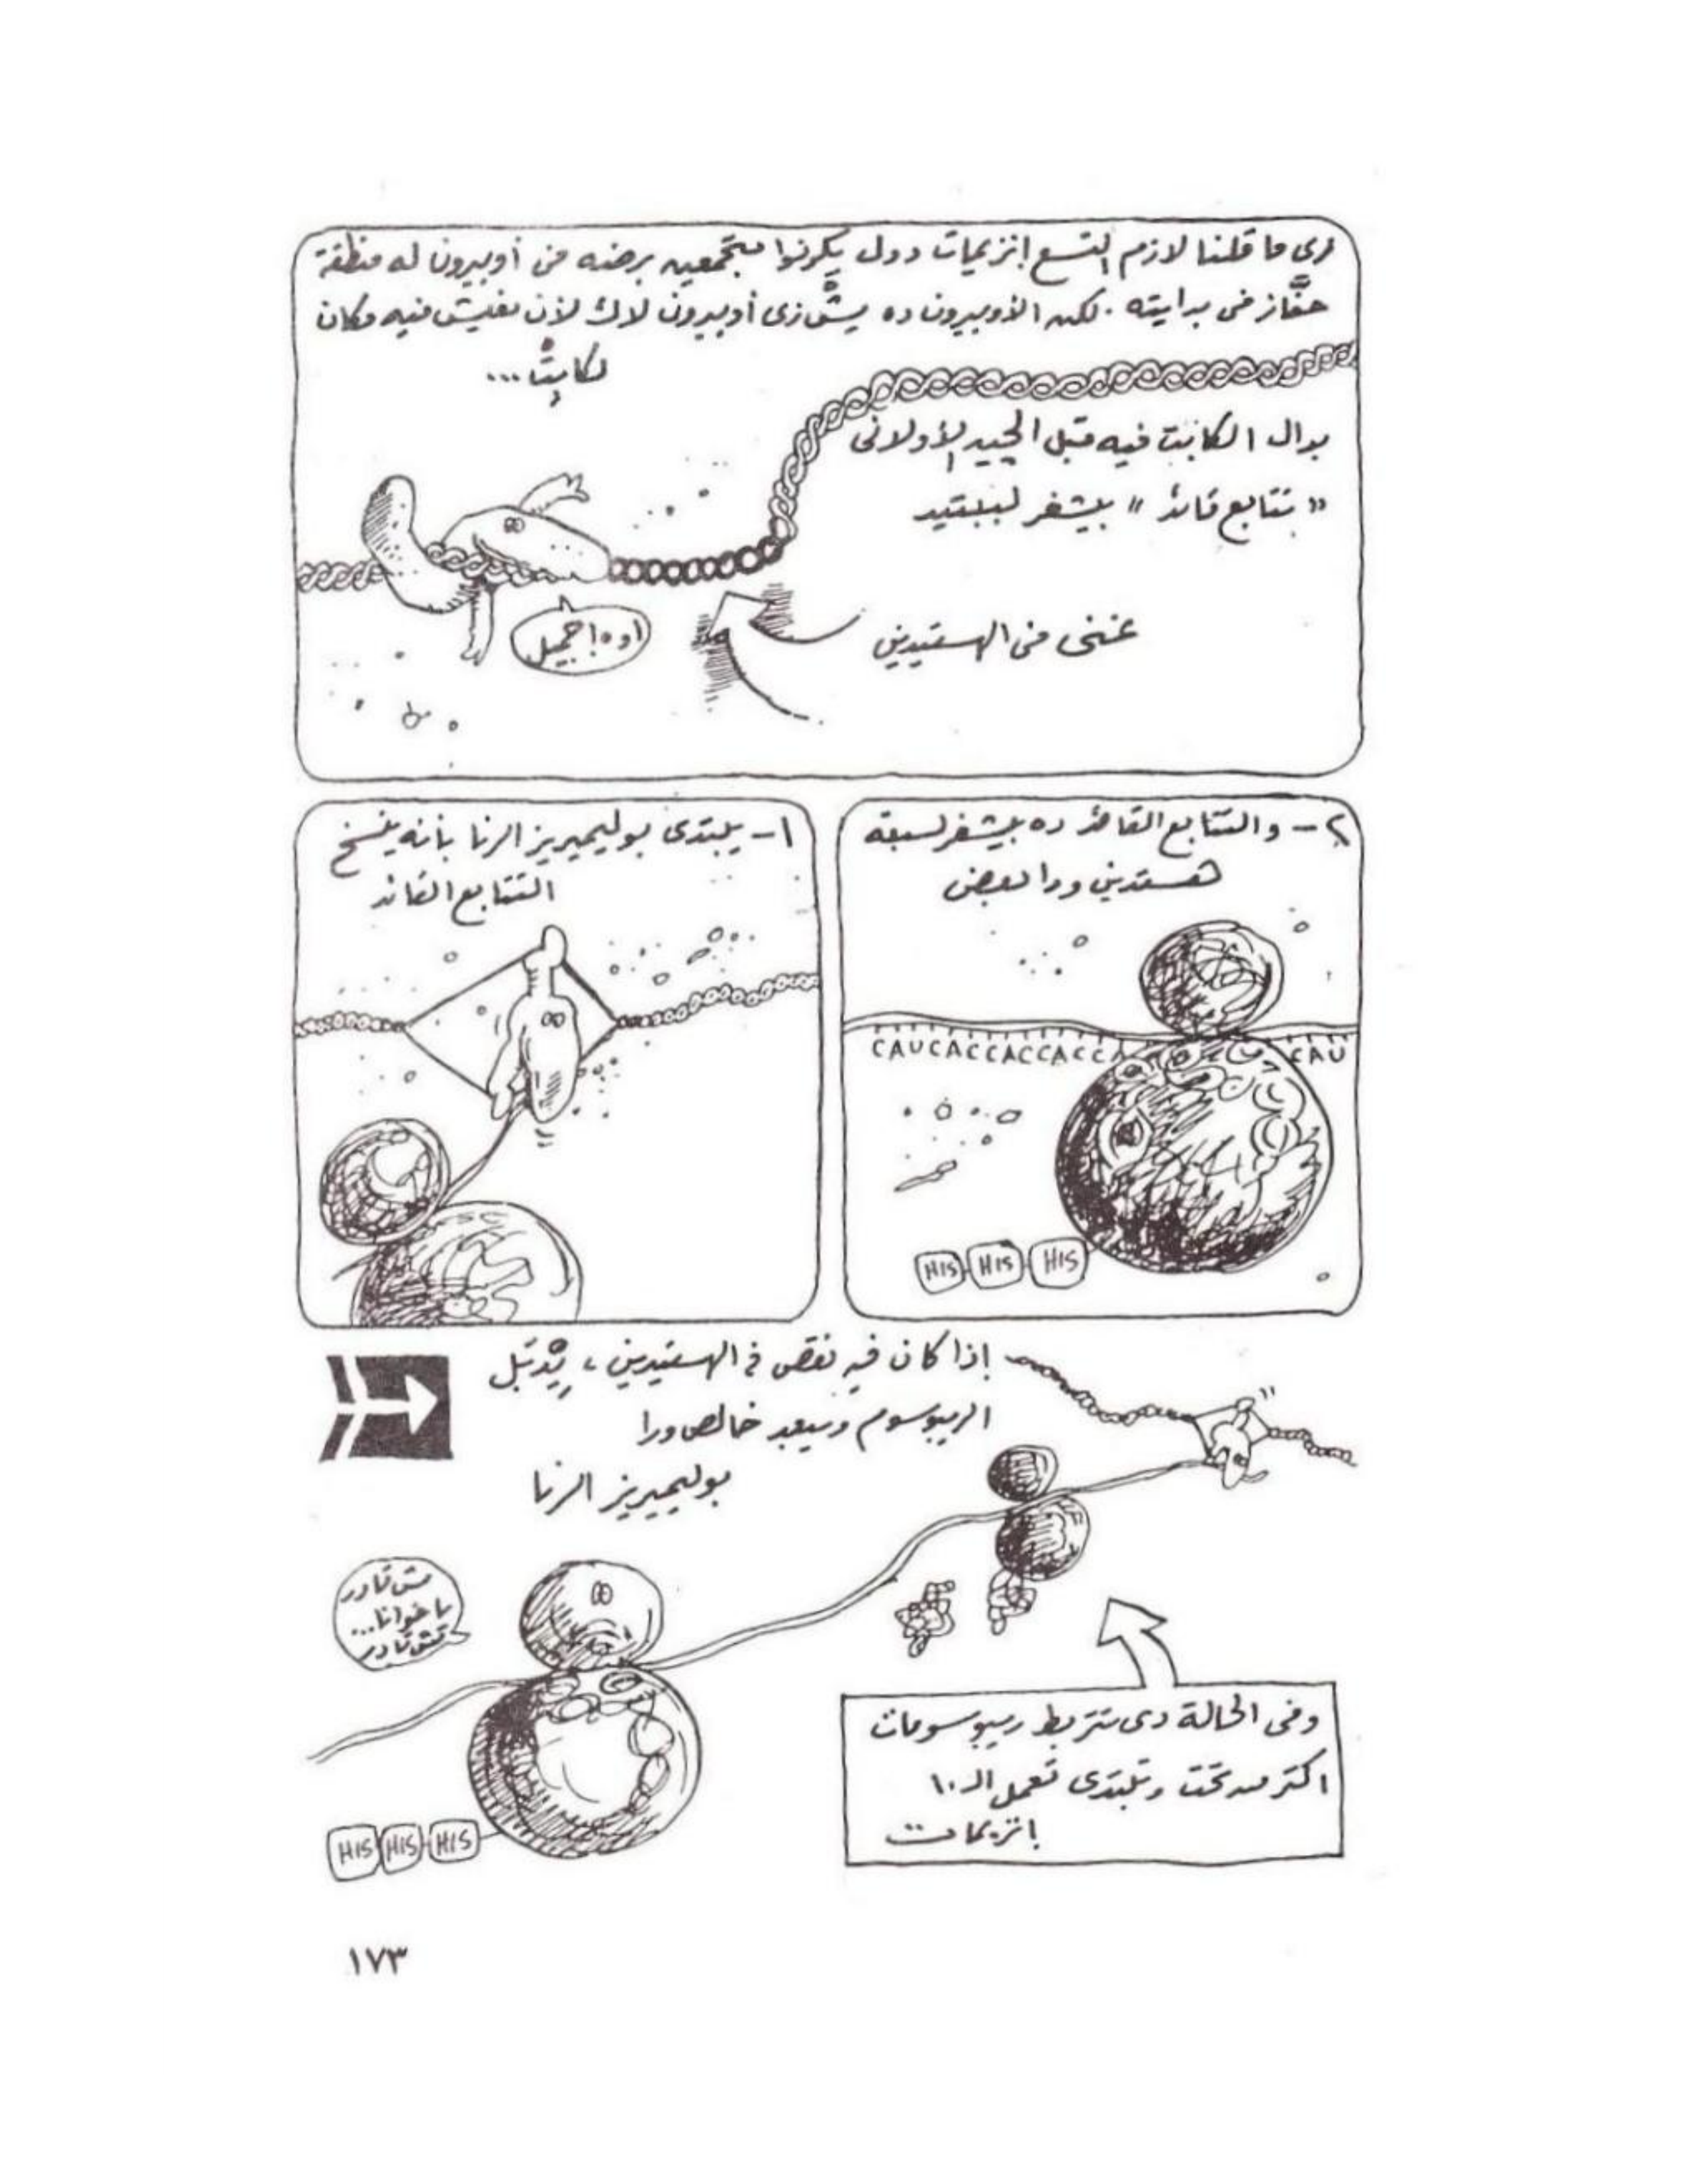 زى ما قلنا لازم التسع انزيمات دول يكونوا متجمعين برضه فى أوبيرون له منطقة
حفَّاز فى بدايته . لكن الأوبيرون ده مِشْ زى أوبيرون لاك لأن مفيش فيه مكان
لكابِتْ ...
بدال الكابت فيه قبل الچين الأولانى
« تتابع قائد » بيشفر لببتيد
غنى فى الهستيدين
اوه! جميل
١- يبتدى بوليميريز الرنا بأنه ينسخ
التتابع القائد
٢- والتتابع القائد ده بيشفر لسبعة
هستدين ورا بعض
CAUCACCACCACC
CAU
HIS HIS HIS
إذا كان فيه نقص فى الهستيدين ، يِدْبَل
الريبوسوم ويبعد خالص ورا
بوليميريز الرنا
مش قادر
يا خوانا...
مش قادر
HIS HIS HIS
وفى الحالة دى تتربط ريبوسومات
اكتر من تحت وتبتدى تعمل الـ ١٠
انزيمات
١٧٣